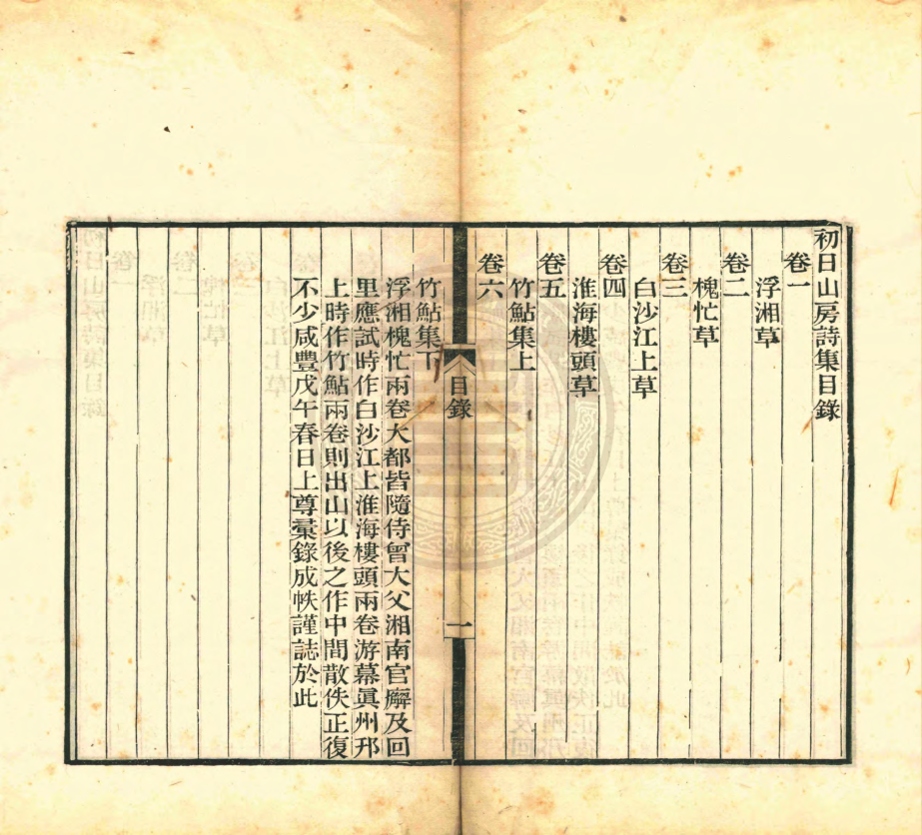 初日山房詩集目錄
卷一
浮湘草
卷二
槐忙草
卷三
白沙江上草
卷四
淮海樓頭草
卷五
竹鮎集上
卷六
目錄
一
竹鮎集下
浮湘槐忙兩卷大都皆隨侍曾大父湘南官廨及回
里應試時作白沙江上淮海樓頭兩卷游幕眞州邗
上時作竹鮎兩卷則出山以後之作中間散佚正復
不少咸豐戊午春日上尊彙錄成帙謹誌於此